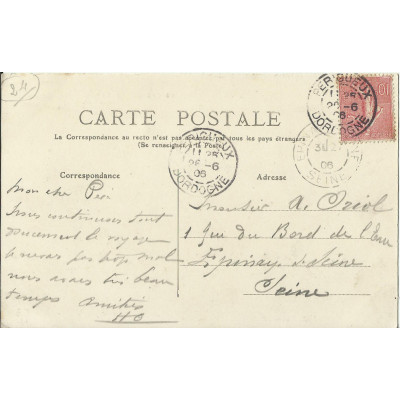 24
PÉRIGUEUX
11 25
26 - 6
06
DORDOGNE
10
CARTE POSTALE
La Correspondance au recto n'est pas acceptée par tous les pays étrangers
(Se renseigner à la Poste)
PÉRIGUEUX
11 25
26 - 6
06
DORDOGNE
06
SEINE
Correspondance
Mon cher
nous continuons tout
doucement le voyage
nous avons très beau
temps Amitiés
Adresse
Monsieur A. Oriol
1 Rue du Bord de l'Eau
Epinay s/ Seine
Seine